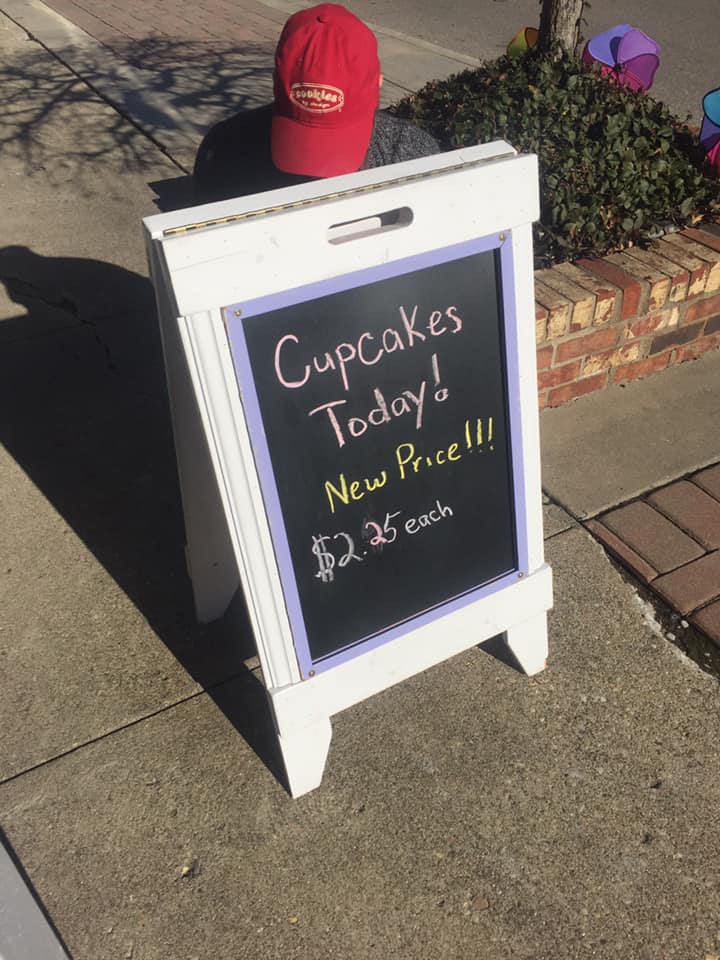 cookies
by design
Cupcakes
Today!
New Price!!!
$2.25 each